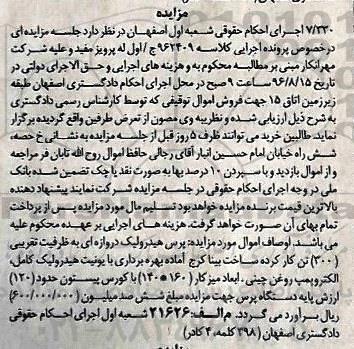 مزایده
۷/۳۳۰ اجرای احکام حقوقی شعبه اول اصفهان در نظر دارد جلسه مزایده ای
درخصوص پرونده اجرایی کلاسه ۹۶۲۴۰۹ ج/ اول له پرویز مفید و علیه شرکت
مهرانکار مبنی بر مطالبه محکوم به و هزینه های اجرایی و حق الاجرای دولتی در
تاریخ ۹۶/۸/۱۵ ساعت ۹ صبح در محل اجرای احکام دادگستری اصفهان طبقه
زیرزمین اتاق ۱۵ جهت فروش اموال توقیفی که توسط کارشناس رسمی دادگستری
به شرح ذیل ارزیابی شده و نظریه وی مصون از تعرض طرفین واقع گردیده برگزار
نماید. طالبین خرید می توانند ظرف ۵ روز قبل از جلسه مزایده به نشانی خ حصه،
شش راه خیابان امام حسین انبار آقای رجالی حافظ اموال روح الله تابان فر مراجعه
و از اموال بازدید و با سپردن ۱۰ درصد بها به صورت نقد یا چک تضمین شده بانک
ملی در وجه اجرای احکام حقوقی در جلسه مزایده شرکت نمایند پیشنهاد دهنده
بالاترین قیمت برنده مزایده خواهد بود تسلیم مال مورد مزایده پس از پرداخت
تمام بهای آن صورت خواهد گرفت. هزینه های اجرایی بر عهده محکوم علیه
می باشد. اوصاف اموال مورد مزایده: پرس هیدرولیک دروازه ای به ظرفیت تقریبی
(۳۰۰) تن کار کرده ساخت بینا کرج آماده بهره برداری با یونیت هیدرولیک کامل،
الکتروپمپ روغن چینی، ابعاد میز کار (۱۶۰*۱۴۰) با کورس پیستون حدود (۱۲۰)
ارزش پایه دستگاه پرس جهت مزایده مبلغ شش صد میلیون (۶۰۰/۰۰۰/۰۰۰)
ریال برآورد می گردد. م الف: ۲۱۶۲۶ شعبه اول اجرای احکام حقوقی
دادگستری اصفهان (۳۹۸ کلمه، ۴ کادر)